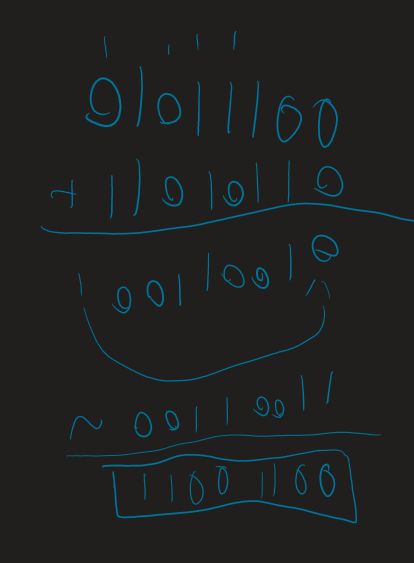 1 1 1 1
01011100
+ 11010110
100110010
~ 00110011
11001100